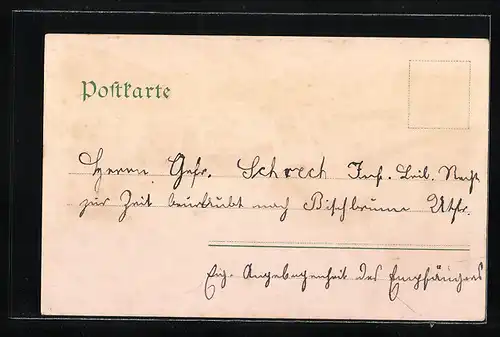 Postkarte
Herrn Gefr. Schrech Inf. Leib. Regt
zur Zeit beurlaubt nach Bischbrunn Utfr.
Eig. Angelegenheit des Empfängers